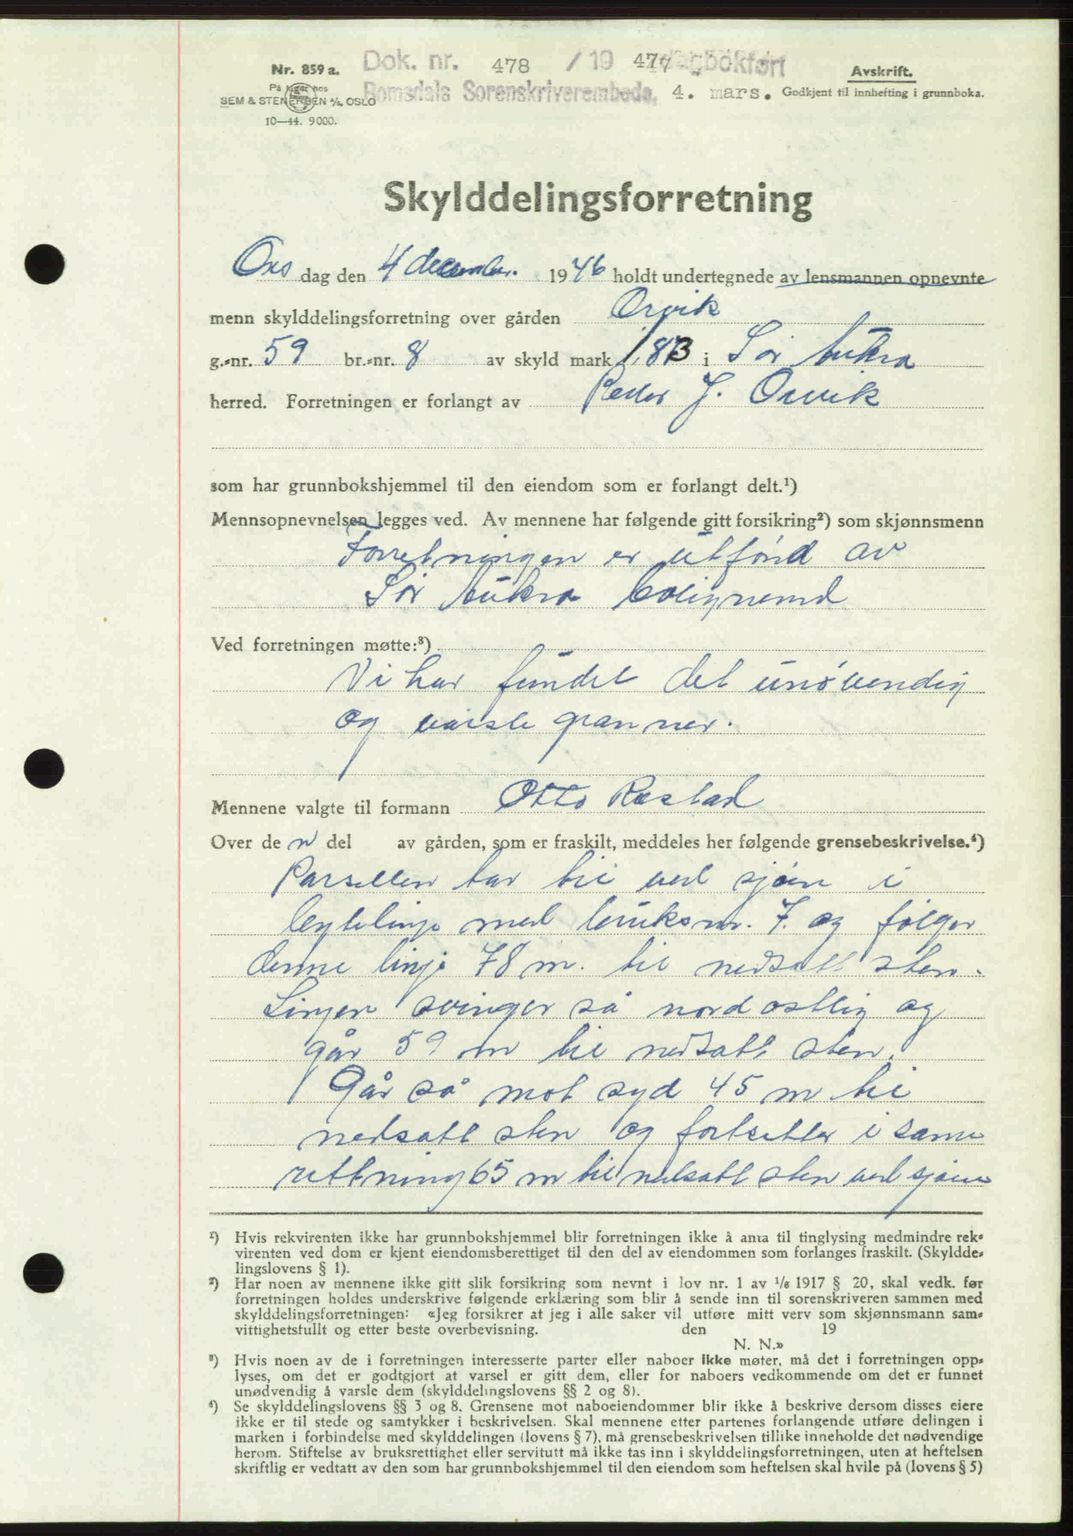 Nr. 859 a.
På lager hos
SEM & STENERSEN A/S, OSLO
10—44. 9000.
Dok. nr. 478 / 19 47 dagbokført
Romsdals Sorenskriverembede, 4. mars.
Avskrift.
Godkjent til innhefting i grunnboka.
Skylddelingsforretning
Ons dag den 4 december. 1946 holdt undertegnede av lensmannen opnevnte
menn skylddelingsforretning over gården Orvik
g.-nr. 59 br.-nr. 8 av skyld mark 1,83 i Sør Aukra
herred. Forretningen er forlangt av Peder J. Orvik
som har grunnbokshjemmel til den eiendom som er forlangt delt.¹)
Mennsopnevnelsen legges ved. Av mennene har følgende gitt forsikring²) som skjønnsmenn
Forretningen er utførd av
Sør Aukra bolignemd
Ved forretningen møtte:³)
Vi har fundet det unøvendig
og varsle granner.
Mennene valgte til formann Otto Rastad
Over de n del av gården, som er fraskilt, meddeles her følgende grensebeskrivelse.⁴)
Parsellen tar til ved sjøen i
bytelinje med bruksnr. 7. og følger
denne linje 78 m. til nedsatt sten.
Linjen svinger så nordostlig og
går 59 m til nedsatt sten.
Går så mot syd 45 m til
nedsatt sten og fortsetter i same
rettning 65 m til nedsatt sten ved sjøen
¹) Hvis rekvirenten ikke har grunnbokshjemmel blir forretningen ikke å anta til tinglysing medmindre rek-
virenten ved dom er kjent eiendomsberettiget til den del av eiendommen som forlanges fraskilt. (Skyldde-
lingslovens § 1).
²) Har noen av mennene ikke gitt slik forsikring som nevnt i lov nr. 1 av ¹/₆ 1917 § 20, skal vedk. før
forretningen holdes underskrive følgende erklæring som blir å sende inn til sorenskriveren sammen med
skylddelingsforretningen: «Jeg forsikrer at jeg i alle saker vil utføre mitt verv som skjønnsmann sam-
vittighetsfullt og etter beste overbevisning. den 19
N. N.»
³) Hvis noen av de i forretningen interesserte parter eller naboer ikke møter, må det i forretningen opp-
lyses, om det er godtgjort at varsel er gitt dem, eller for naboers vedkommende om det er funnet
unødvendig å varsle dem (skylddelingslovens §§ 2 og 8).
⁴) Se skylddelingslovens §§ 3 og 8. Grensene mot naboeiendommer blir ikke å beskrive dersom disses eiere
ikke er til stede og samtykker i beskrivelsen. Skal mennene etter partenes forlangende utføre delingen i
marken i forbindelse med skylddelingen (lovens § 7), må grensebeskrivelsen tillike inneholde det nødvendige
herom. Stiftelse av bruksrettighet eller servitutt må ikke tas inn i skylddelingsforretningen, uten at heftelsen
skriftlig er vedtatt av den som har grunnbokshjemmel til den eiendom som heftelsen skal hvile på (lovens § 5)